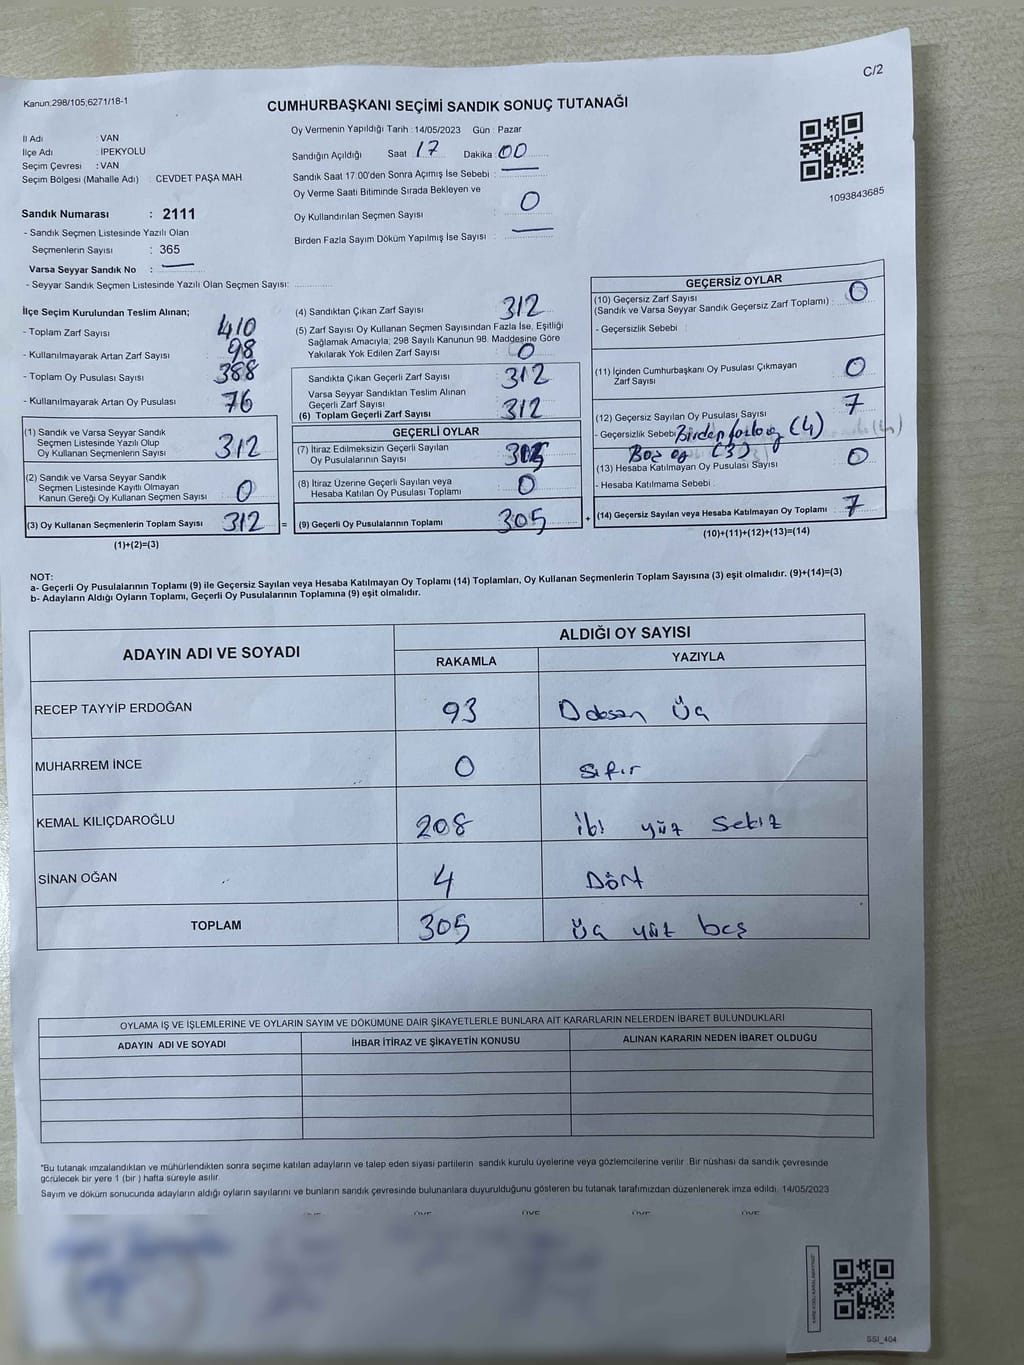 C/2
Kanun:298/105;6271/18-1
CUMHURBAŞKANI SEÇİMİ SANDIK SONUÇ TUTANAĞI
İl Adı : VAN
İlçe Adı : İPEKYOLU
Seçim Çevresi : VAN
Seçim Bölgesi (Mahalle Adı) : CEVDET PAŞA MAH
Sandık Numarası : 2111
- Sandık Seçmen Listesinde Yazılı Olan
Seçmenlerin Sayısı : 365
Varsa Seyyar Sandık No : —
- Seyyar Sandık Seçmen Listesinde Yazılı Olan Seçmen Sayısı:
Oy Vermenin Yapıldığı Tarih : 14/05/2023 Gün : Pazar
Sandığın Açıldığı Saat 17 Dakika 00
Sandık Saat 17.00'den Sonra Açımış İse Sebebi : —
Oy Verme Saati Bitiminde Sırada Bekleyen ve
Oy Kullandırılan Seçmen Sayısı : 0
Birden Fazla Sayım Döküm Yapılmış İse Sayısı : —
1093843685
İlçe Seçim Kurulundan Teslim Alınan;
- Toplam Zarf Sayısı : 410
- Kullanılmayarak Artan Zarf Sayısı : 98
- Toplam Oy Pusulası Sayısı : 388
- Kullanılmayarak Artan Oy Pusulası : 76
(1) Sandık ve Varsa Seyyar Sandık
Seçmen Listesinde Yazılı Olup
Oy Kullanan Seçmenlerin Sayısı : 312
(2) Sandık ve Varsa Seyyar Sandık
Seçmen Listesinde Kayıtlı Olmayan
Kanun Gereği Oy Kullanan Seçmen Sayısı : 0
(3) Oy Kullanan Seçmenlerin Toplam Sayısı : 312 =
(1)+(2)=(3)
(4) Sandıktan Çıkan Zarf Sayısı : 312
(5) Zarf Sayısı Oy Kullanan Seçmen Sayısından Fazla İse, Eşitliği
Sağlamak Amacıyla; 298 Sayılı Kanunun 98. Maddesine Göre
Yakılarak Yok Edilen Zarf Sayısı : 0
Sandıkta Çıkan Geçerli Zarf Sayısı : 312
Varsa Seyyar Sandıktan Teslim Alınan
Geçerli Zarf Sayısı :
(6) Toplam Geçerli Zarf Sayısı : 312
GEÇERLİ OYLAR
(7) İtiraz Edilmeksizin Geçerli Sayılan
Oy Pusulalarının Sayısı : 305
(8) İtiraz Üzerine Geçerli Sayılan veya
Hesaba Katılan Oy Pusulası Toplamı : 0
(9) Geçerli Oy Pusulalarının Toplamı : 305 +
GEÇERSİZ OYLAR
(10) Geçersiz Zarf Sayısı
(Sandık ve Varsa Seyyar Sandık Geçersiz Zarf Toplamı) : 0
- Geçersizlik Sebebi :
(11) İçinden Cumhurbaşkanı Oy Pusulası Çıkmayan
Zarf Sayısı : 0
(12) Geçersiz Sayılan Oy Pusulası Sayısı : 7
- Geçersizlik Sebebi : Birden fazla oy (4)
Boş oy (3)
(13) Hesaba Katılmayan Oy Pusulası Sayısı : 0
- Hesaba Katılmama Sebebi :
(14) Geçersiz Sayılan veya Hesaba Katılmayan Oy Toplamı : 7
(10)+(11)+(12)+(13)=(14)
NOT:
a- Geçerli Oy Pusulalarının Toplamı (9) ile Geçersiz Sayılan veya Hesaba Katılmayan Oy Toplamı (14) Toplamları, Oy Kullanan Seçmenlerin Toplam Sayısına (3) eşit olmalıdır. (9)+(14)=(3)
b- Adayların Aldığı Oyların Toplamı, Geçerli Oy Pusulalarının Toplamına (9) eşit olmalıdır.
ADAYIN ADI VE SOYADI ALDIĞI OY SAYISI
RAKAMLA YAZIYLA
RECEP TAYYİP ERDOĞAN 93 Doksan Üç
MUHARREM İNCE 0 Sıfır
KEMAL KILIÇDAROĞLU 208 iki yüz Sekiz
SİNAN OĞAN 4 Dört
TOPLAM 305 üç yüz beş
OYLAMA İŞ VE İŞLEMLERİNE VE OYLARIN SAYIM VE DÖKÜMÜNE DAİR ŞİKAYETLERLE BUNLARA AİT KARARLARIN NELERDEN İBARET BULUNDUKLARI
ADAYIN ADI VE SOYADI İHBAR İTİRAZ VE ŞİKAYETİN KONUSU ALINAN KARARIN NEDEN İBARET OLDUĞU
"Bu tutanak imzalandıktan ve mühürlendikten sonra seçime katılan adayların ve talep eden siyasi partilerin sandık kurulu üyelerine veya gözlemcilerine verilir. Bir nüshası da sandık çevresinde
görülecek bir yere 1 (bir ) hafta süreyle asılır.
Sayım ve döküm sonucunda adayların aldığı oyların sayılarını ve bunların sandık çevresinde bulunanlara duyurulduğunu gösteren bu tutanak tarafımızdan düzenlenerek imza edildi. 14/05/2023
ÜYE ÜYE ÜYE ÜYE ÜYE
SSI_404